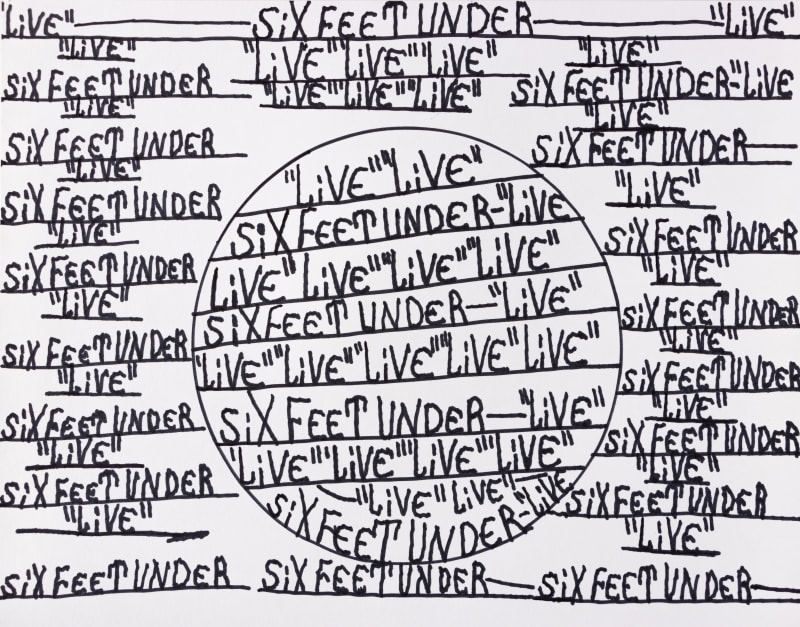 "LiVE" — SiX FEET UNDER — "LiVE"
"LiVE"
SiX FEET UNDER
"LiVE"
SiX FEET UNDER
"LiVE"
SiX FEET UNDER
"LiVE"
SiX FEET UNDER
"LiVE"
SiX FEET UNDER
"LiVE"
SiX FEET UNDER
"LiVE"
SiX FEET UNDER
"LiVE"
"LiVE" "LiVE" "LiVE"
"LiVE" "LiVE" "LiVE"
"LiVE" "LiVE"
SiX FEET UNDER-"LiVE
LiVE" LiVE "LiVE" LiVE"
SiX FEET UNDER—"LiVE"
"LiVE" "LiVE" "LiVE" "LiVE" LiVE"
SiX FEET UNDER—"LiVE"
"LiVE" "LiVE" "LiVE" "LiVE"
"LiVE" LiVE"
SiX FEET UNDER-"LiVE"
"LiVE"
SiX FEET UNDER-"LiVE
"LiVE"
SiX FEET UNDER—
"LiVE"
SiX FEET UNDER
"LiVE"
SiX FEET UNDER
"LiVE"
SiX FEET UNDER
"LiVE"
SiX FEET UNDER
"LiVE"
SiX FEET UNDER
"LiVE"
SiX FEET UNDER SiX FEET UNDER— SiX FEET UNDER—